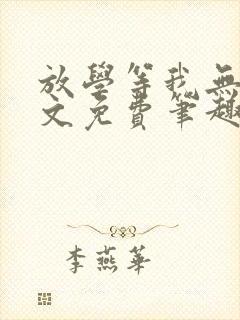 放學等我無
文免費筆趣
李燕華